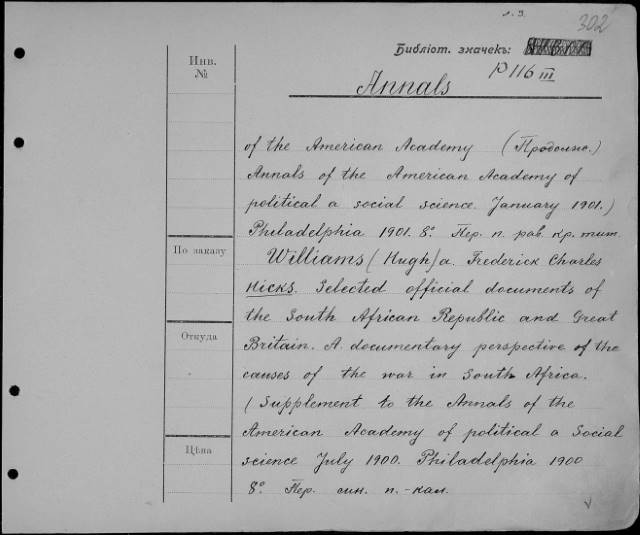 л. 3.
302
Библіот. значекъ:
P 116 III
Инв.
№
Annals
of the American Academy (Продолже.)
Annals of the American Academy of
political a social science January 1901.)
Philadelphia 1901. 8°. Пер. п. рав. кр. тит.
По заказу
Williams (Hugh) a. Frederick Charles
Hicks. Selected official documents of
the South African Republic and Great
Откуда
Britain. A documentary perspective of the
causes of the war in South Africa.
(Supplement to the Annals of the
American Academy of political a Social
Цѣна
science July 1900. Philadelphia 1900
8° Пер. син. п. - кал.